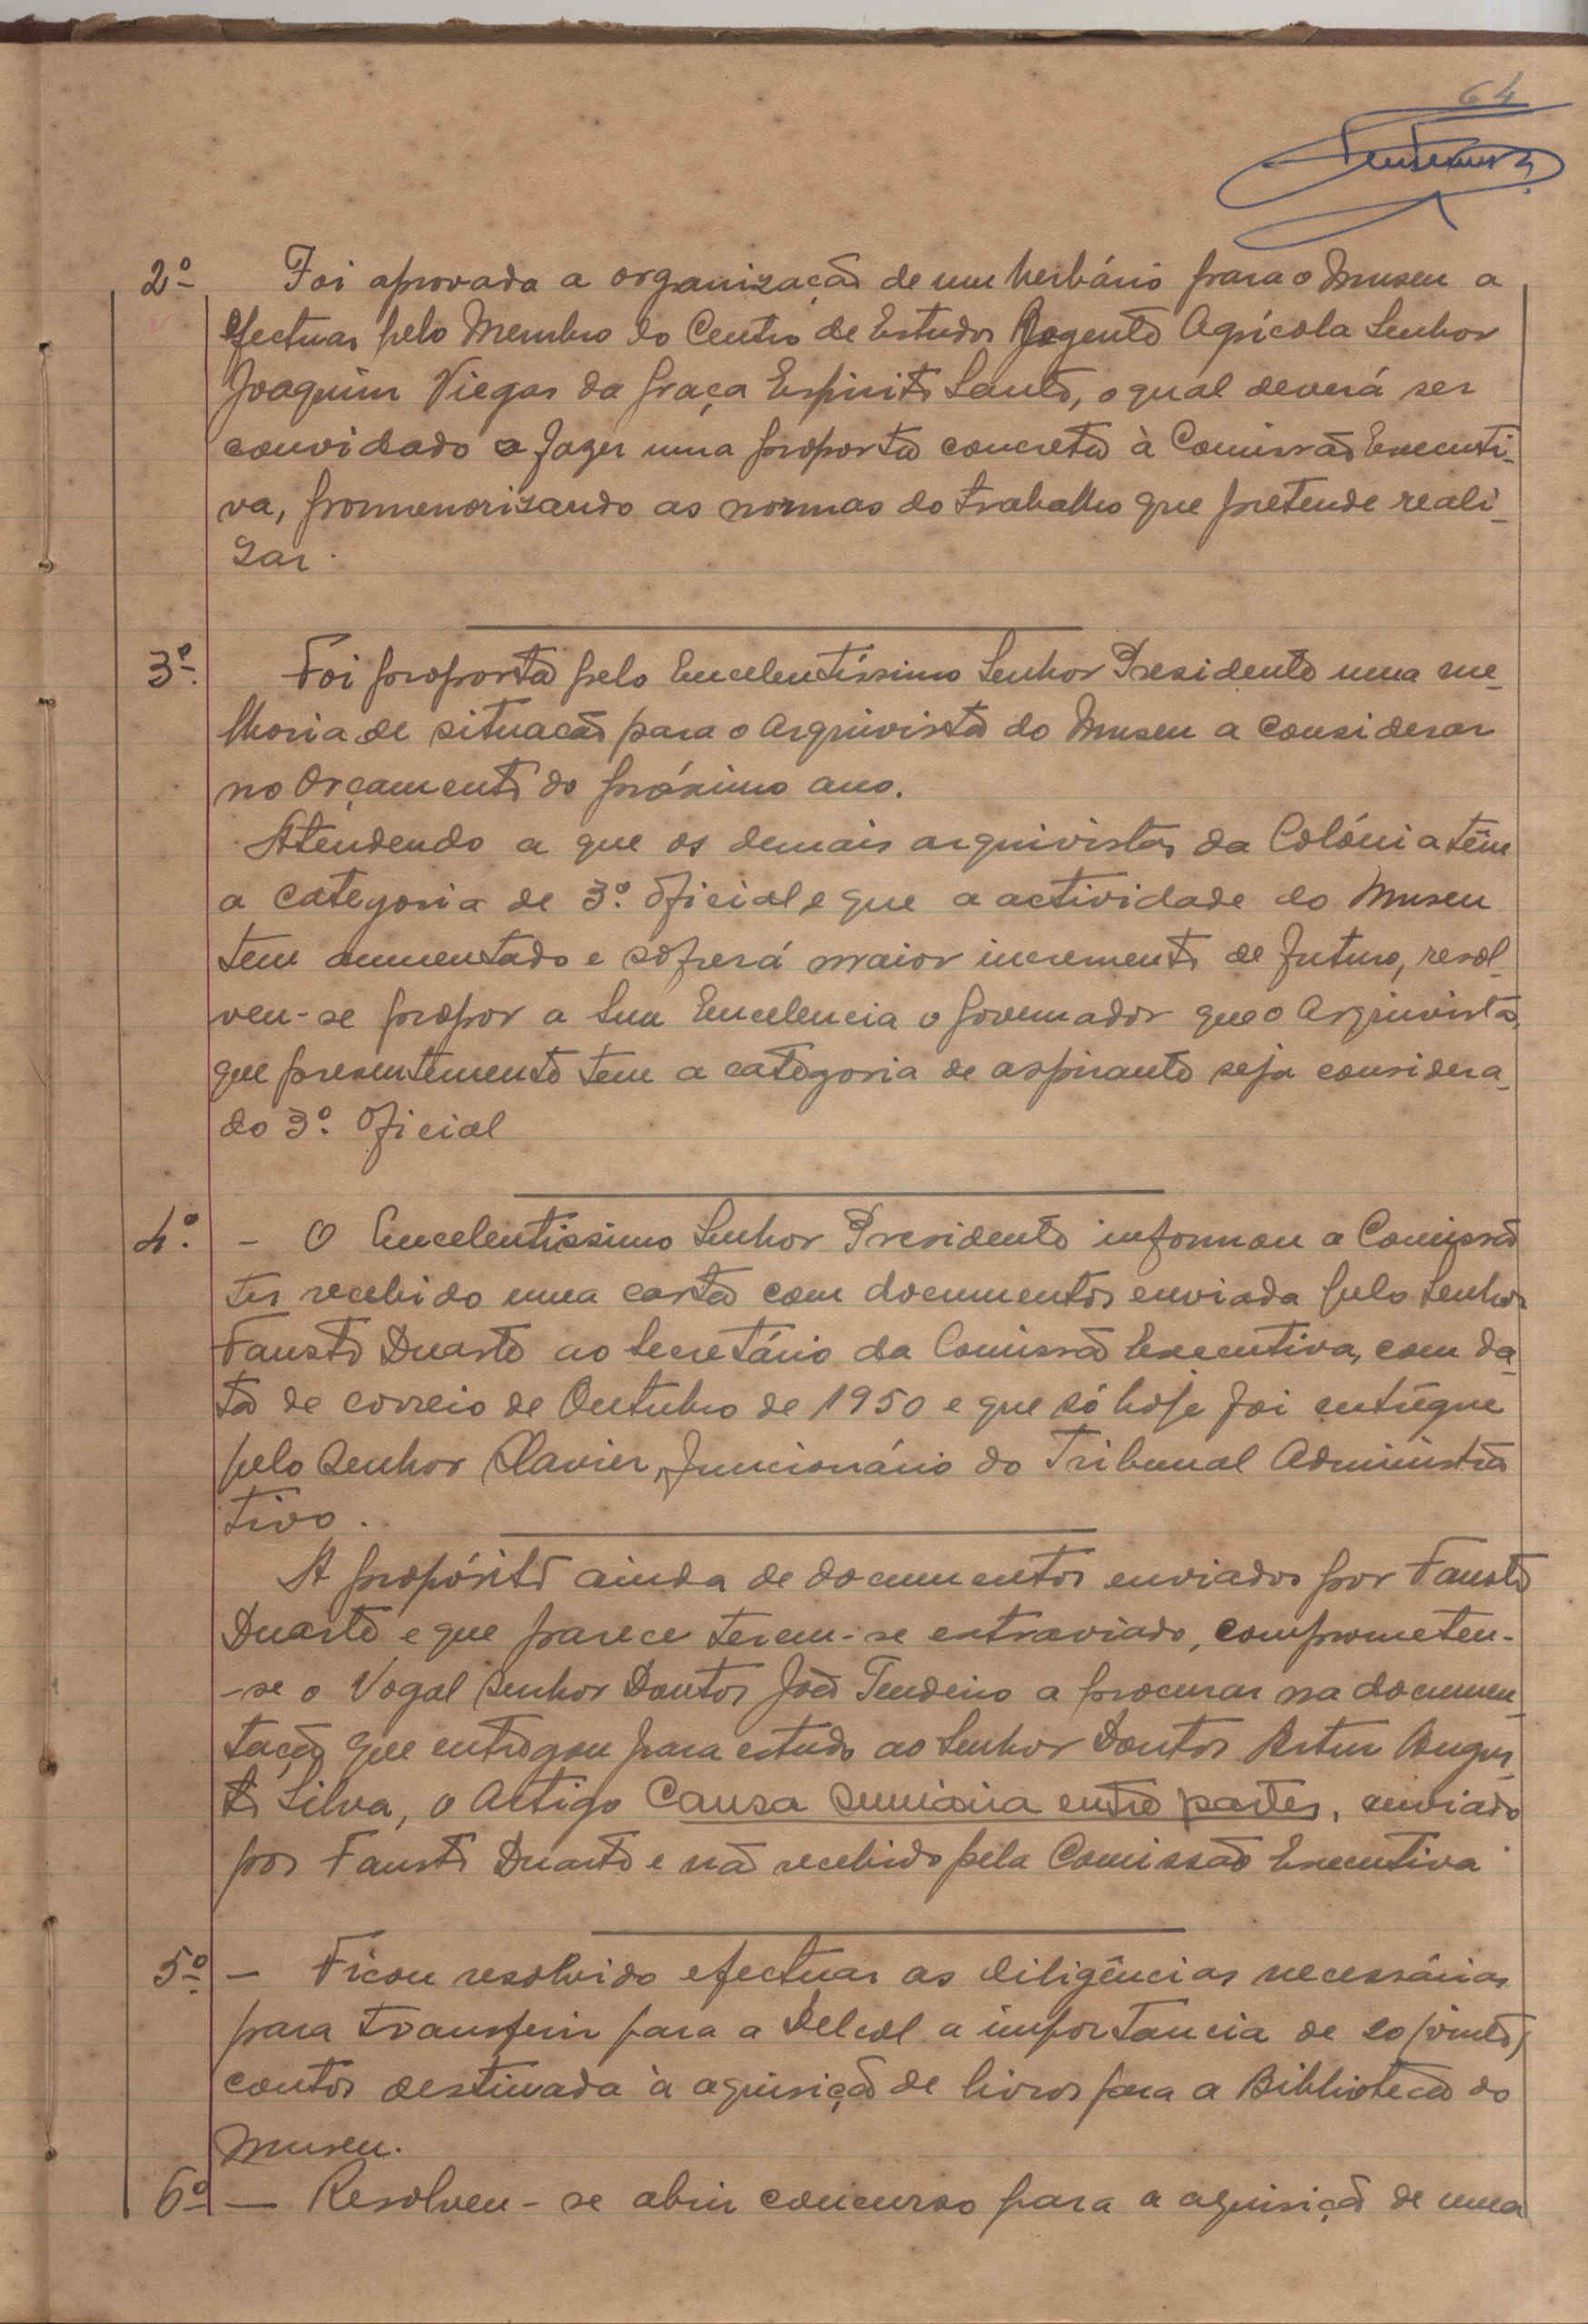 64
2º Foi aprovada a organização de um herbário para o Museu a
efectuar pelo Membro do Centro de Estudos Regente Agrícola Senhor
Joaquim Viegas da Graça Espirito Santo, o qual deverá ser
convidado a fazer uma proposta concreta à Comissão Executi-
va, prommenorizando as normas do trabalho que pretende reali-
zar.
3º. Foi proposta pelo Excelentíssimo Senhor Presidente uma me-
lhoria de situação para o Arquivista do Museu a considerar
no Orçamento do próximo ano.
Atendendo a que os demais arquivistas da Colónia têm
a categoria de 3º. Oficial e que a actividade do Museu
tem aumentado e sofrerá maior incremento de futuro, resol-
veu-se propor a Sua Excelencia o Governador que o Arquivista,
que presentemente tem a categoria de aspirante seja considera-
do 3º. Oficial
4º. - O Excelentissimo Senhor Presidente informou a Comissão
ter recebido uma carta com documentos enviada pelo Senhor
Fausto Duarte ao Secretário da Comissão Executiva, com da-
ta de correio de Outubro de 1950 e que só hoje foi entregue
pelo Senhor Xavier, funcionário do Tribunal Administra
tivo.
A propósito ainda de documentos enviados por Fausto
Duarte e que parece terem-se extraviado, comprometeu-
-se o Vogal Senhor Doutor João Tendeiro a procurar na documen-
tação que entregou para estudo ao Senhor Doutor Artur Augus-
to Silva, o Artigo Causa Sumária entre partes, enviado
por Fausto Duarte e não recebido pela Comissão Executiva
5º - Ficou resolvido efectuar as diligências necessárias
para transferir para a Delcol a importancia de 20 (vinte)
contos destinada à aquisição de livros para a Biblioteca do
Museu.
6º - Resolveu-se abrir concurso para a aquisição de uma